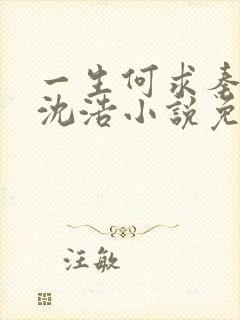 一生何求秦
沈浩小説免
汪敏